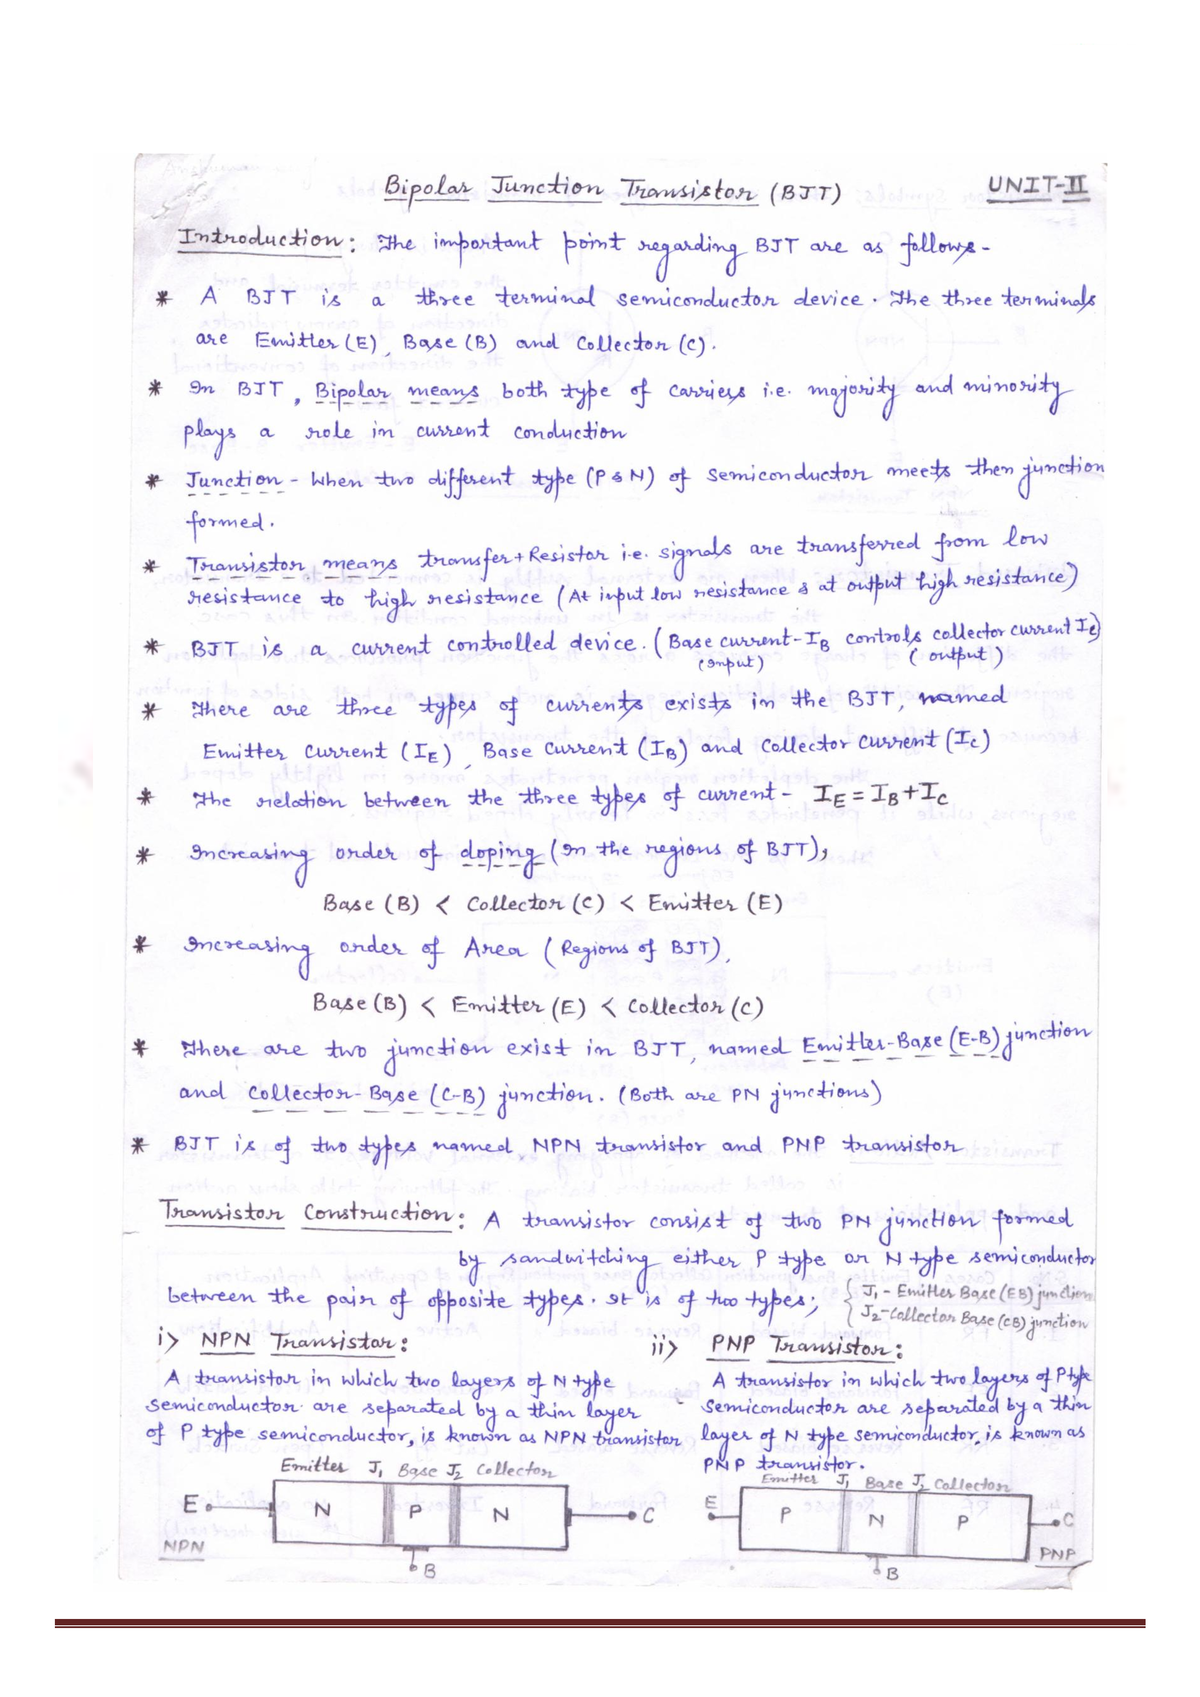 Bipolar Junction Transistor (BJT)
UNIT-II
Introduction: The important point regarding BJT are as follows-
* A BJT is a three terminal semiconductor device. The three terminals
are Emitter (E), Base (B) and Collector (C).
* In BJT, Bipolar means both type of carriers i.e. majority and minority
plays a role in current conduction
* Junction - When two different type (P & N) of semiconductor meets then junction
formed.
* Transistor means transfer + Resistor i.e. signals are transferred from low
resistance to high resistance (At input low resistance & at output high resistance)
* BJT is a current controlled device. (Base current-IB controls collector current IC)
(Input) (output)
* There are three types of currents exists in the BJT, named
Emitter current (IE), Base current (IB) and Collector current (IC)
* The relation between the three types of current - IE = IB + IC
* Increasing order of doping (In the regions of BJT),
Base (B) < Collector (C) < Emitter (E)
* Increasing order of Area (Regions of BJT),
Base (B) < Emitter (E) < Collector (C)
* There are two junction exist in BJT, named Emitter-Base (E-B) junction
and Collector-Base (C-B) junction. (Both are PN junctions)
* BJT is of two types named NPN transistor and PNP transistor
Transistor Construction: A transistor consist of two PN junction formed
by sandwitching either P type or N type semiconductor
between the pair of opposite types. It is of two types;
J1 - Emitter Base (EB) junction
J2 - Collector Base (CB) junction
i> NPN Transistor:
A transistor in which two layers of N type
semiconductor are separated by a thin layer
of P type semiconductor, is known as NPN transistor
Emitter J1 Base J2 Collector
E N P N C
NPN
B
ii> PNP Transistor:
A transistor in which two layers of P type
semiconductor are separated by a thin
layer of N type semiconductor, is known as
PNP transistor.
Emitter J1 Base J2 Collector
E P N P C
PNP
B